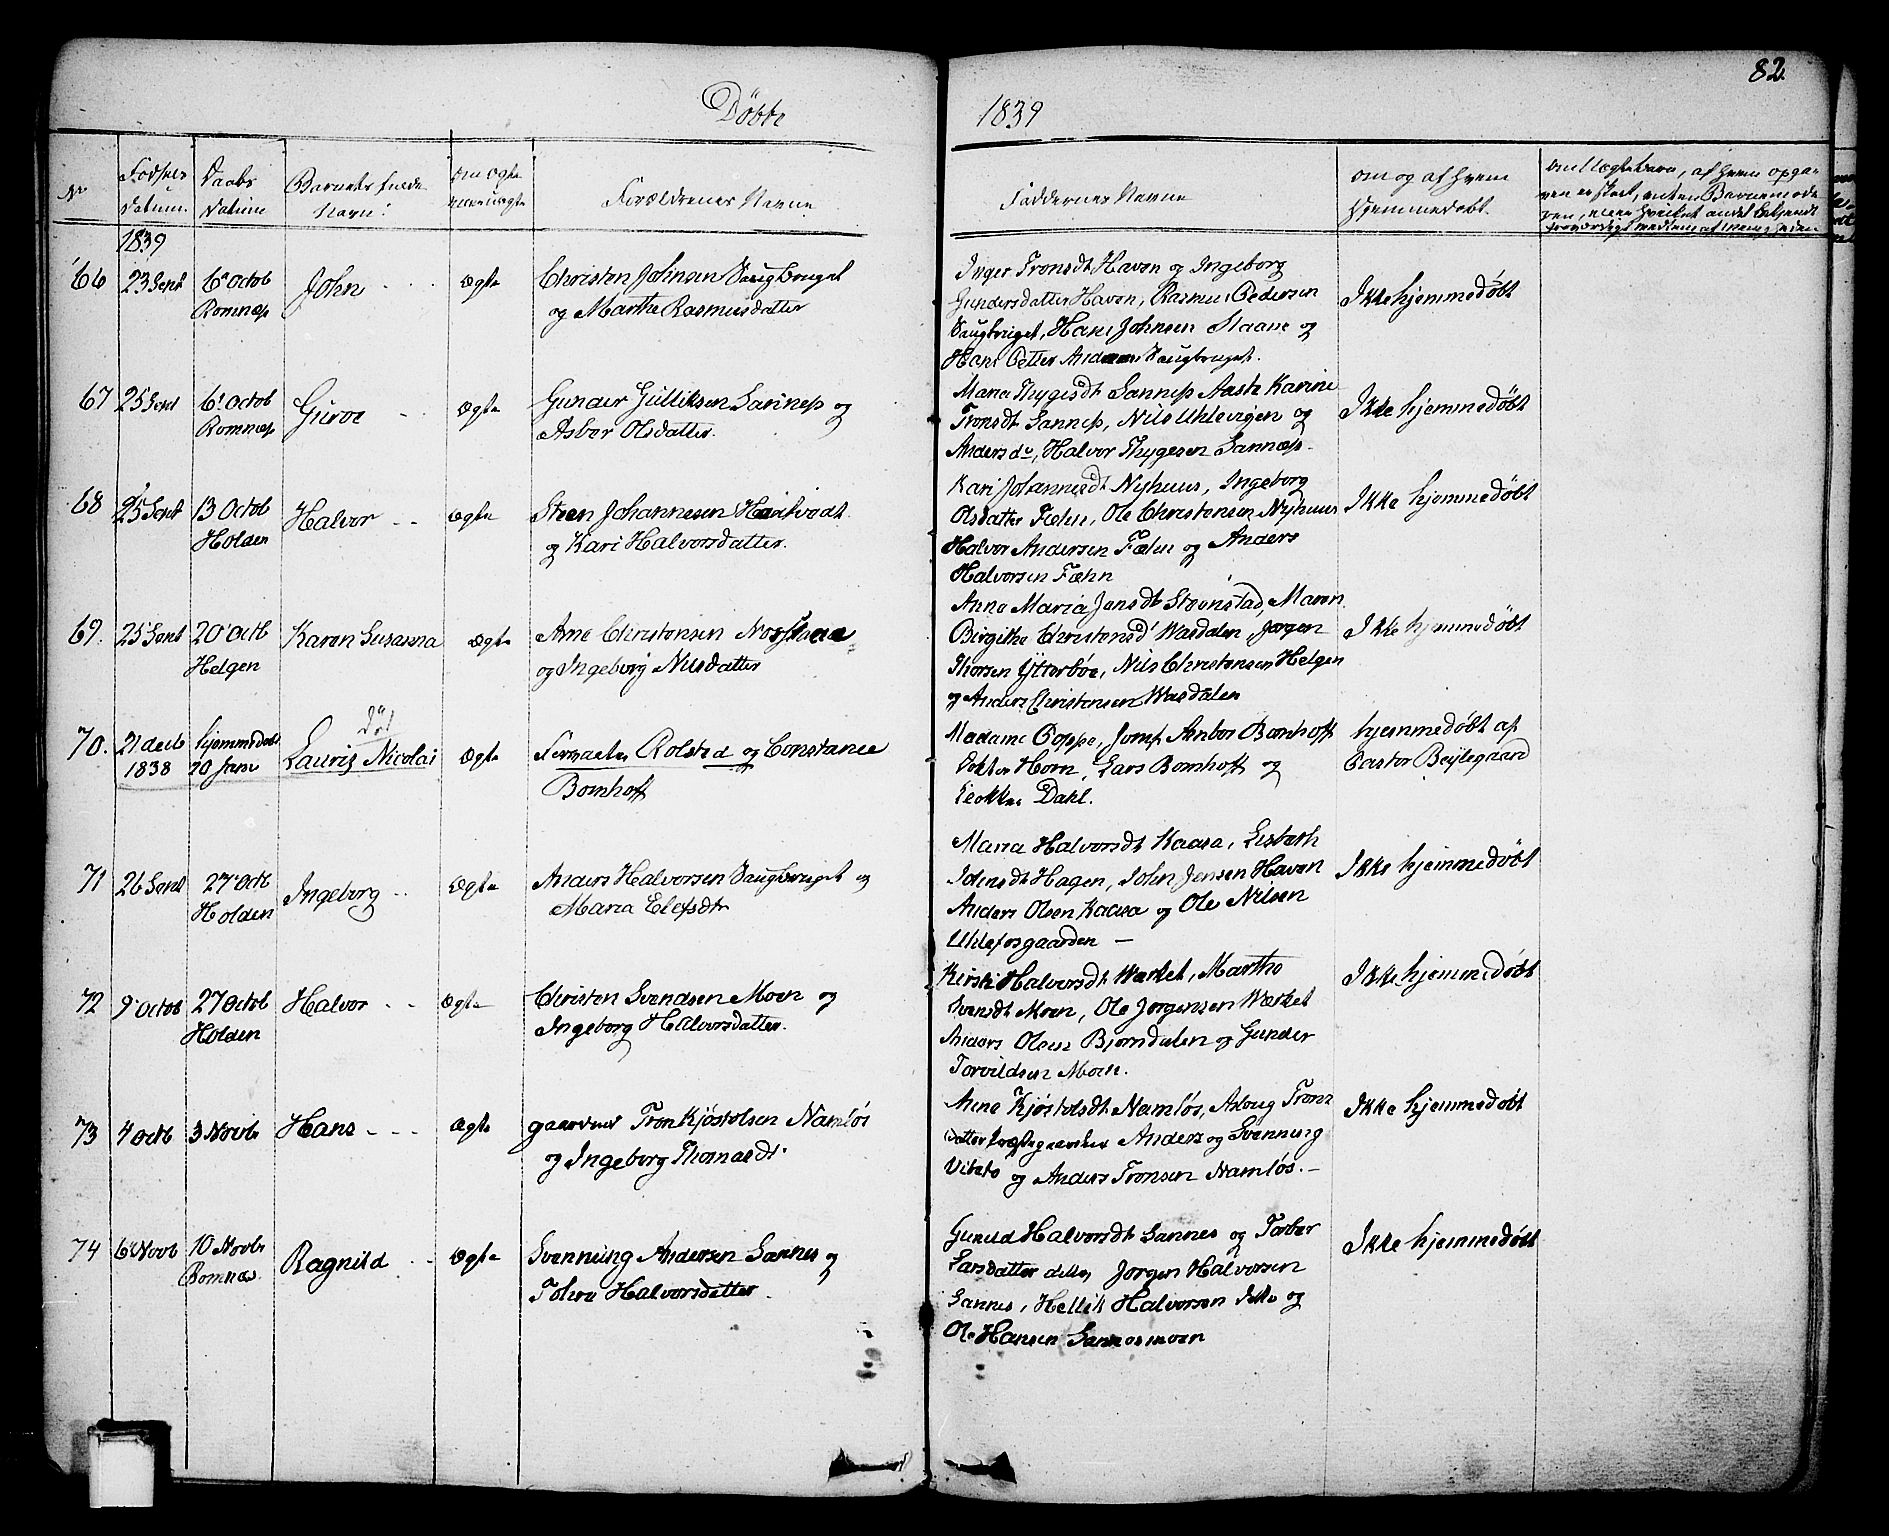 82
Døbte
1839
No
Fødsels Datum
Daabs Datum
Barnets fulde Navn
om ægte
Forældrenes Navne
Faddernes Navne
om og af hvem hjemmedøbt
1839
66 23 Sept 6 Octob Romnæs John ægte
Christen Johnsen Saugbruget
og Marthe Rasmusdatter
Inger Tronsdt Haven og Ingeborg
Gundersdatter Haven, Rasmus Pedersen
Saugbruget, Hans Johnsen Staane og
Hans Petter Andersen Saugbruget.
Ikke hjemmedøbt
67 25 Sept 6 Octob Romnæs Guroe ægte
Gunder Gulliksen Sannes og
Asber Olsdatter.
Maria Thygesdt Sannes Aaste Karine
Tronsdt Sannes, Nils Uhlevigen og
Anders do, Halvor Thygesen Sannes.
Ikke hjemmedøbt
68 25 Sept 13 Octob Holden Halvor ægte
Steen Johannesen
og Kari Halvorsdatter.
Kari Johannesdt Nyhuus, Ingeborg
Olsdatter Fæhn, Ole Christensen Nyhuus
Halvor Andersen Fæhn og Anders
Halvorsen Fæhn
Ikke hjemmedøbt
69. 25 Sept 20 Octb Helgen Karen Susanna ægte
Arne Christensen
og Ingeborg Nilsdatter
Anne Maria Jensdt Steenstad, Maren
Birgithe Christensd Wasdalen, Jørgen
Thorsen Ytterbøe, Nils Christensen Helgen
og Anders Christensen Wasdalen
Ikke hjemmedøbt
70. 21 decb 1838 hjemmedøbt 20 Janv
død
Lauris Nicolai ægte
Rolsted og Constance
Bomhoff
Madame Poppe, Jomf Bomhoff
Doktor Horn, Lars Bomhoff og
Klokker Dahl.
hjemmedøbt af
Pastor Beylegaard
71 26 Sept 27 Octb Holden Ingeborg ægte
Anders Halvorsen Saugbruget og
Maria Elefsdt
Maria Halvorsdt Kaasa, Lisbeth
Hagen, John Jensen Haven
Anders Olsen Kaasa og Ole Nilsen
Uhlefosgaarden —
Ikke hjemmedøbt
72 9 Octob 27 Octob Holden Halvor ægte
Christen Svendsen Moen og
Ingeborg Halvorsdatter.
Kirsti Halvorsdt Værket, Marthe
Svensdt Moen, Ole Jørgensen Værket
Anders Olsen Bjørndalen og Gunder
Torvildsen Moen.
Ikke hjemmedøbt
73 4 Octb 3 Novbr Hans ægte
gaardmd Tron Kjøstolsen Namløs
og Ingeborg Thomasdt
Anne Kjøstolsdt Namløs, Asborg Trons
datter Anders og Svenning
Vibeto og Anders Tronsen Namløs. —
Ikke hjemmedøbt
74 6 Novb 10 Novbr Romnæs Ragnild ægte
Svenning Andersen Sannes og
Tolvu Halvorsdatter.
Gunild Halvorsdt Sannes og Torber
Larsdatter Jørgen Halvorsen
Sannes, Hellik Halvorsen og
Ole Hansen Sannesmoen
Ikke hjemmedøbt